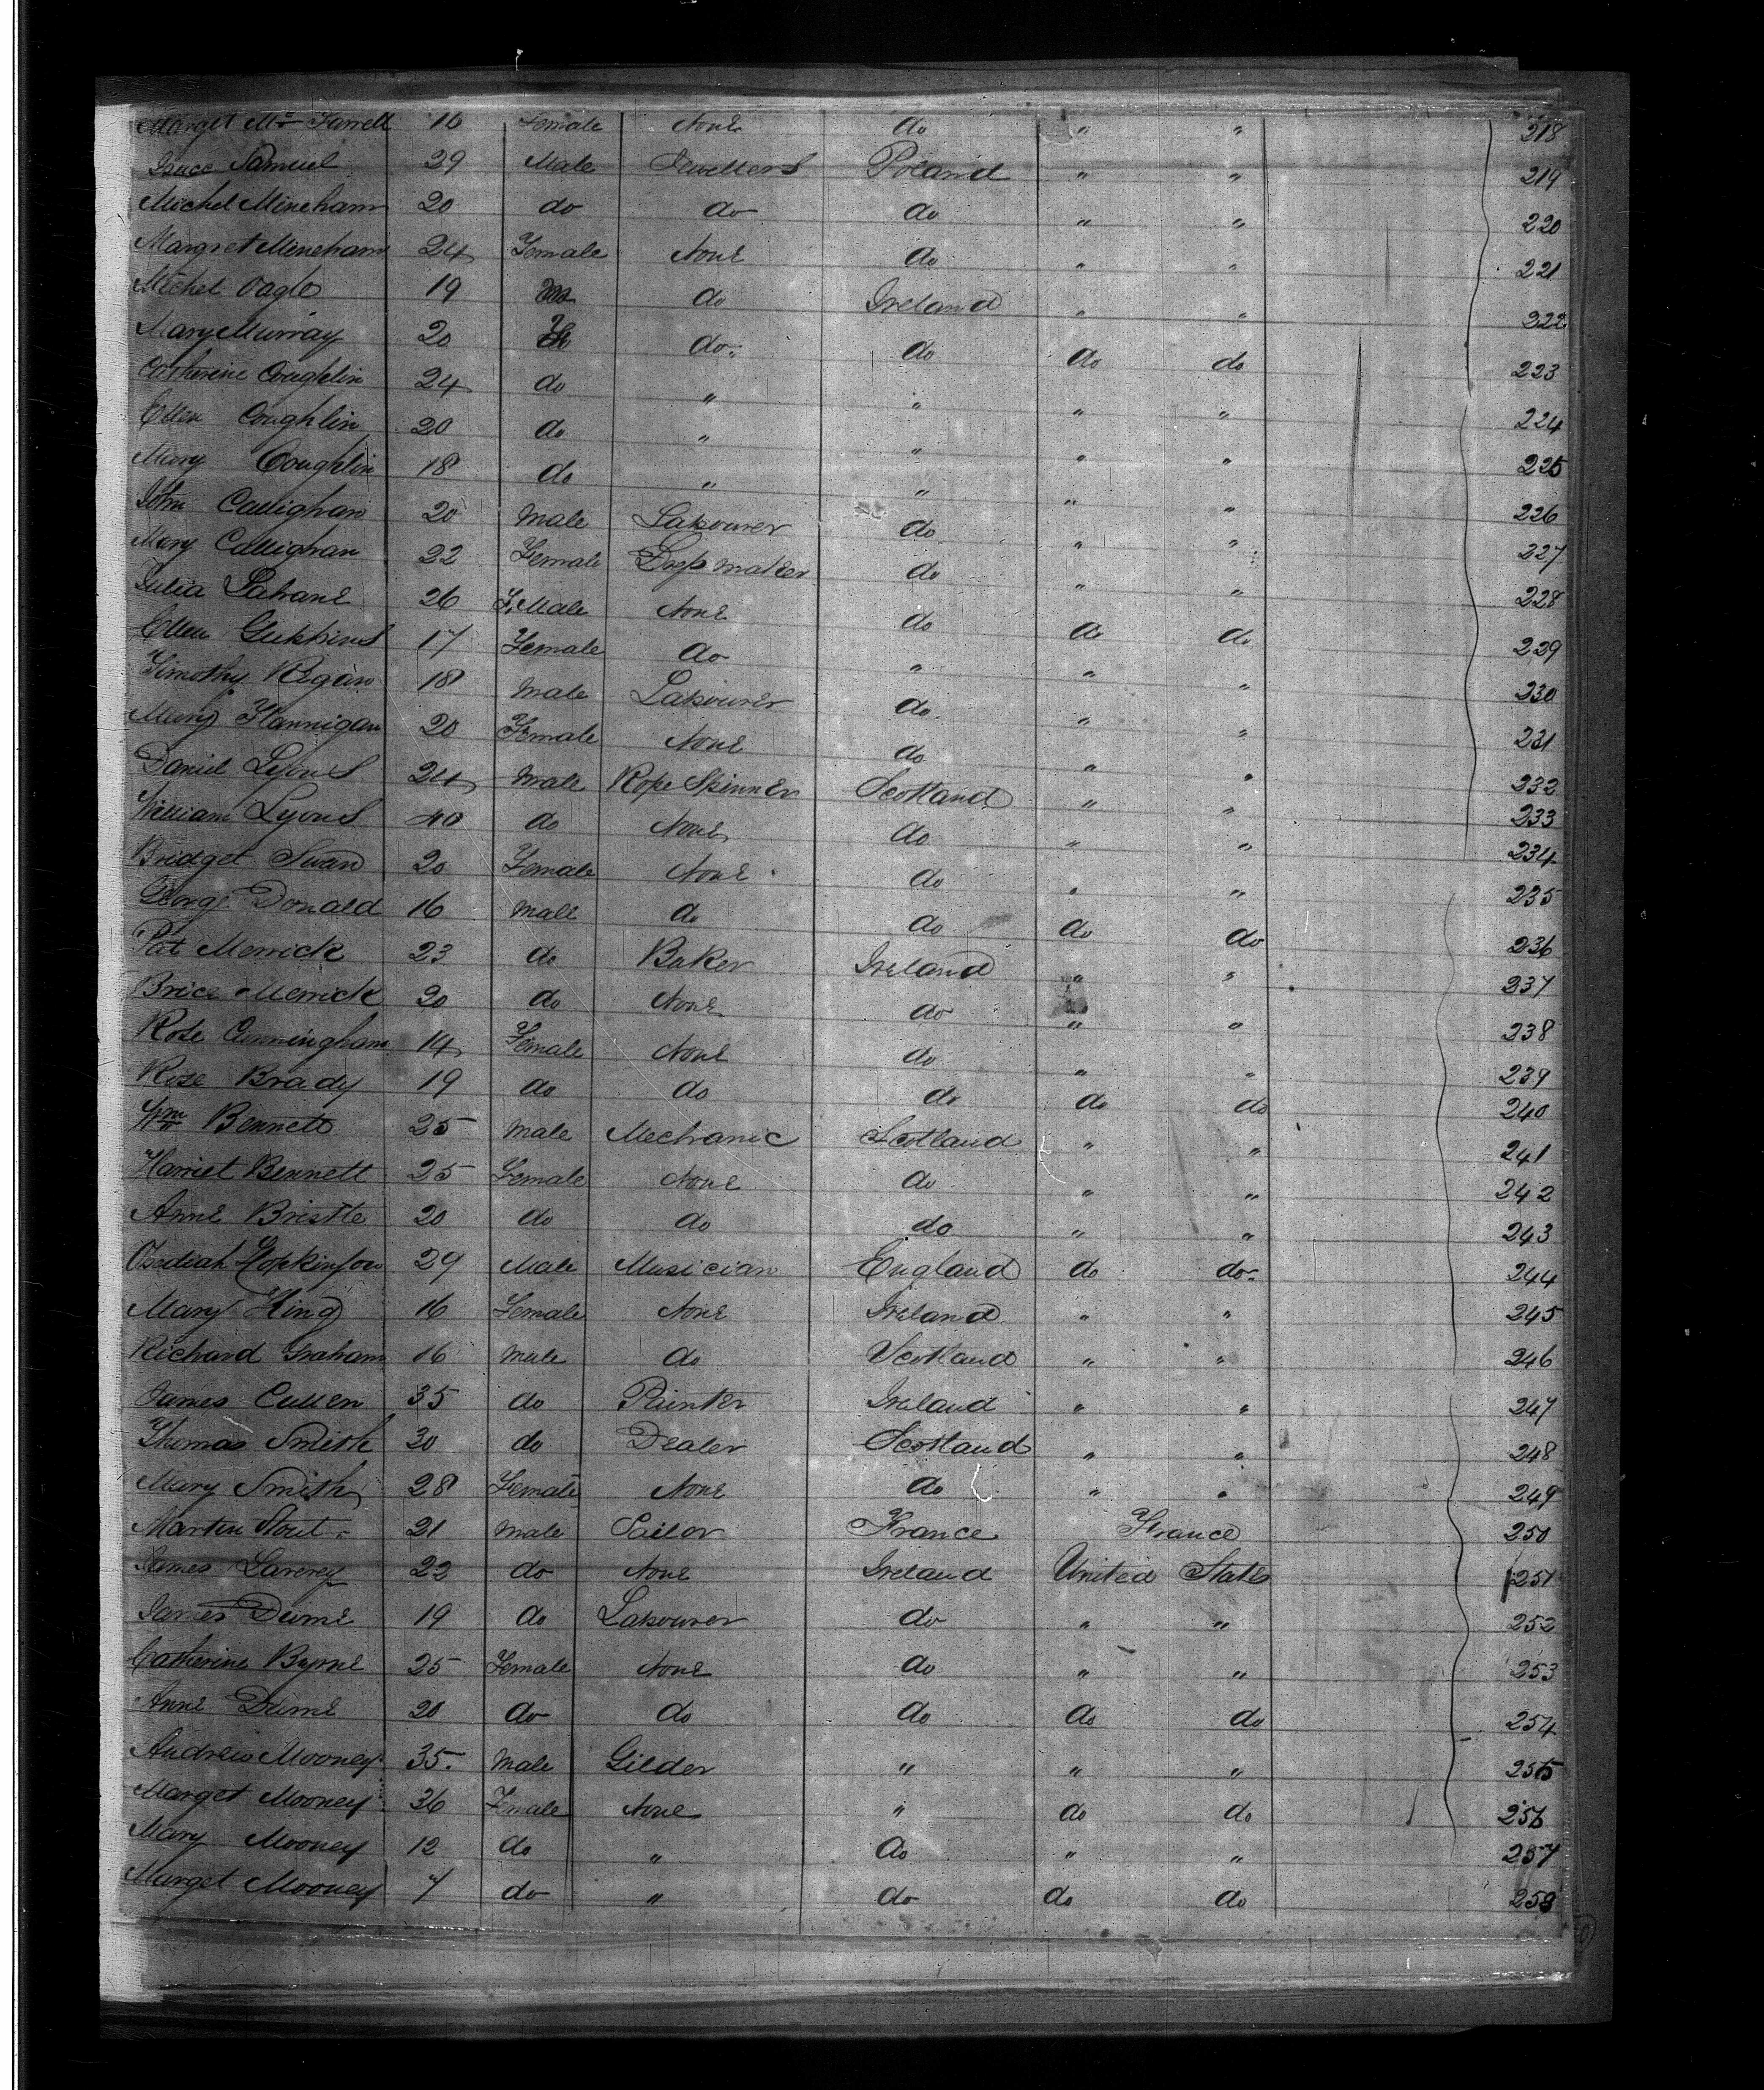 Marget Mc Farrell 16 Female None do " " 218
Isacc Samuel 29 Male Jewellers Poland " " 219
Michel Mineham 20 do do do " " 220
Margret Meneham 24 Female None do " " 221
Michel 19 M do Ireland " " 222
Mary Murray 20 Fe do do do do 223
Catherine Coughlin 24 do " " " " 224
Ellen Coughlin 20 do " " " " 225
Mary Coughlin 18 do " " " " 226
John Callighan 20 Male Labourer do " " 227
Mary Callighan 22 Female Dressmaker do " " 228
Julia Lahane 26 F.Male None do do do 229
Ellen 17 Female do " " " 230
Timothy Regan 18 Male Labourer do " " 231
Mary Flannigan 20 Female None do " " 232
Daniel Lyons 24 Male Rope Spinner Scotland " " 233
William Lyons 40 do None do " " 234
Bridget Swan 20 Female None do " " 235
George Donald 16 Male do do do do 236
Pat Merrick 23 do Baker Ireland " " 237
Brice Merrick 20 do None do " " 238
Rose Cunningham 14 Female None do " " 239
Rose Brady 19 do do do do do 240
Wm Bennett 25 Male Mechanic Scotland " " 241
Harriet Bennett 25 Female None do " " 242
Anne Bristle 20 do do do " " 243
Obediah Hopkinson 29 Male Musician England do do 244
Mary King 16 Female None Ireland " " 245
Richard Graham 16 Male do Scotland " " 246
James Cullen 35 do Painter Ireland " " 247
Thomas Smith 30 do Dealer Scotland " " 248
Mary Smith 28 Female None do " " 249
Martin Stout 21 Male Sailor France France 250
James Larvey 22 do None Ireland United States 251
James Dunne 19 do Labourer do " " 252
Catherine Byrne 25 Female None do " " 253
Anne Dunne 20 do do do do do 254
Andrew Mooney 35 Male Gilder " " " 255
Marget Mooney 36 Female None " do do 256
Mary Mooney 12 do " do " " 257
Marget Mooney 7 do " do do do 258